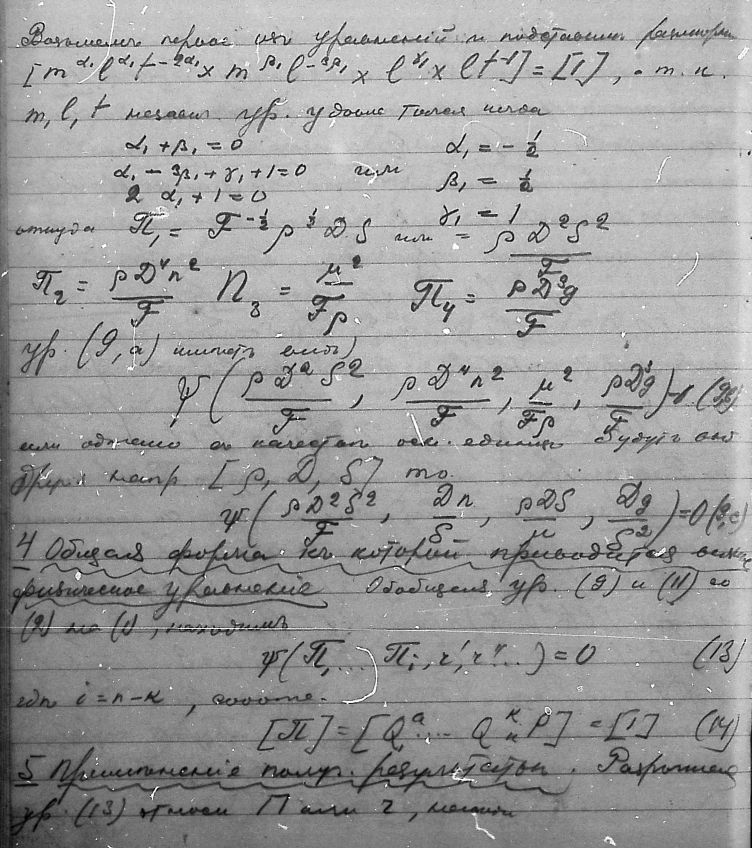 Возьмемъ первое изъ уравненій и подставимъ размѣры
[m^α₁ l^α₁ t^-2α₁ × m^β₁ l^-3β₁ × l^γ₁ × l t^-1] = [1], т.к.
m, l, t независ. ур. удовле
α₁ + β₁ = 0 α₁ = -1/2
α₁ - 3β₁ + γ₁ + 1 = 0 или β₁ = 1/2
2 α₁ + 1 = 0 γ₁ = 1
откуда П₁ = F^-1/2 ρ^1/2 D S или = ρD²S²/F
П₂ = ρD⁴n²/F П₃ = μ²/Fρ П₄ = ρD³g/F
ур. (9,а) имѣетъ видъ
ψ(ρD²S²/F, ρD⁴n²/F, μ²/Fρ, ρD³g/F)
или въ качествѣ осн. единицъ будутъ
другія напр. [ρ, D, S] то
ψ(ρD²S²/F, Dn/S, ρDS/μ, Dg/S²) = 0
4 Общая форма къ которой приводится всякое
физическое уравненіе Обобщая ур. (9) и (11) со
(2) на (1), находимъ
ψ(П, ... Пᵢ, r', r''...) = 0 (13)
гдѣ i = n-к,
[П] = [Q₁^a ... Qₙ^к P] = [1] (14)
5 Примѣненіе получ. результатовъ.
ур. (13) относ. П или r,